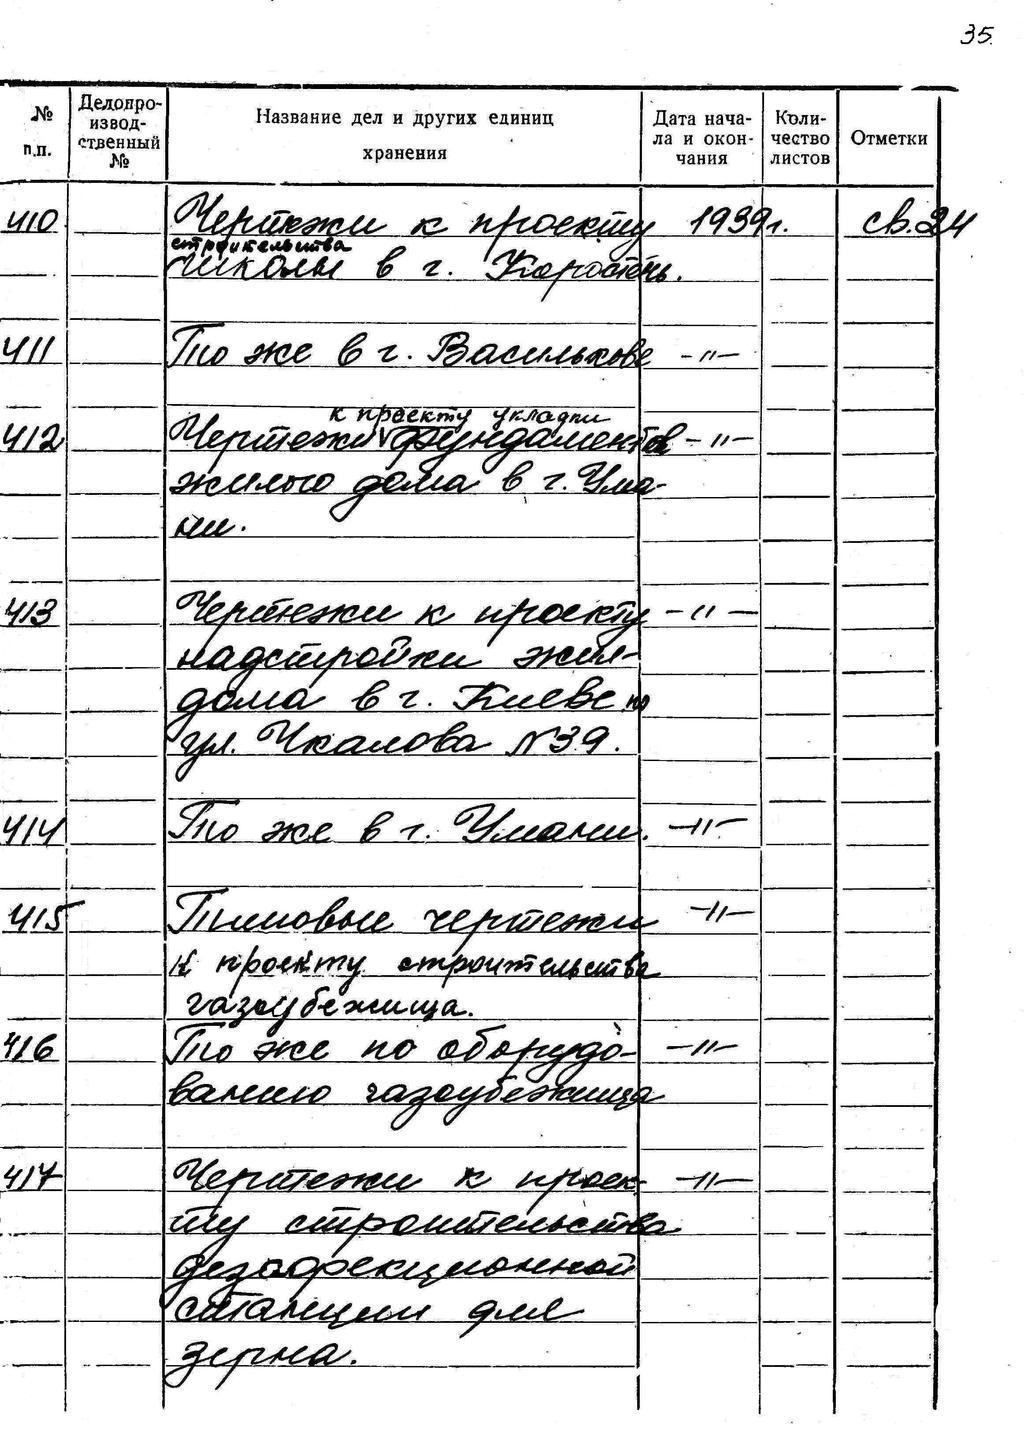 35.
№ п.п.
Делопроизвод-ственный №
Название дел и других единиц хранения
Дата нача-ла и окон-чания
Коли-чество листов
Отметки
410 Чертежи к проекту 1939г. св.24
строительства
школы в г. Коростень.
411 То же в г. Василькове -"-
к проекту укладки
412 Чертежи V фундаментов -"-
жилого дома в г. Ума-
ни.
413 Чертежи к проекту -"-
надстройки жил-
дома в г. Киеве по
ул. Чкалова №39.
414 То же в г. Умани. -"-
415 Типовые чертежи -"-
к проекту строительства
газоубежища.
416 То же по оборудо- -"-
ванию газоубежища
417 Чертежи к проек- -"-
ту строительства
дезофрекционной
станции для
зерна.